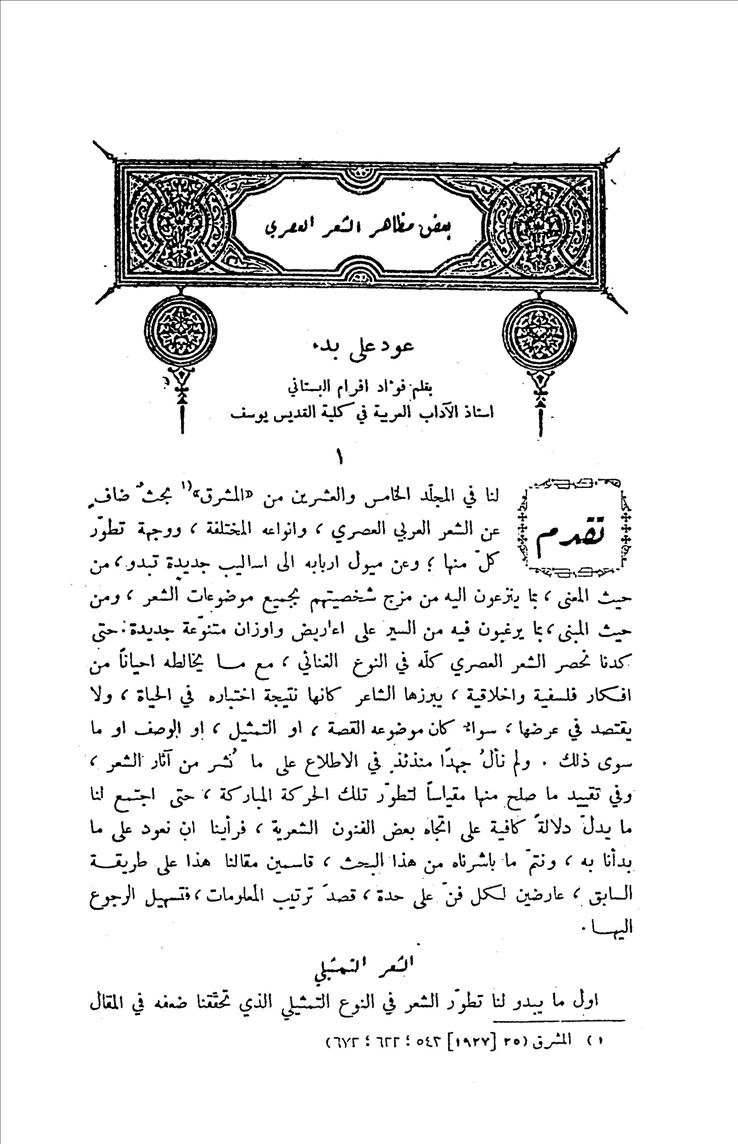 بعض مظاهر الشعر العصري
عود على بدء
بقلم فؤاد افرام البستاني
استاذ الآداب العربية في كلية القديس يوسف
١
تقدم
لنا في المجلّد الخامس والعشرين من «المشرق»(١ بحثٌ ضافٍ
عن الشعر العربي العصري ، وانواعه المختلفة ، ووجهة تطوّر
كلّ منها ؛ وعن ميول اربابه الى اساليب جديدة تبدو ، من
حيث المعنى ، بما ينزعون اليه من مزج شخصيتهم بجميع موضوعات الشعر ، ومن
حيث المبنى ، بما يرغبون فيه من السير على اعاريض واوزان متنوّعة جديدة : حتى
كدنا نحصر الشعر العصري كلّه في النوع الغنائي ، مع مـا يخالطه احياناً من
افكار فلسفية واخلاقية ، يبرزها الشاعر كانها نتيجة اختباره في الحياة ، ولا
يقتصد في عرضها ، سواءٌ كان موضوعه القصة ، او التمثيل ، او الوصف او ما
سوى ذلك . ولم نألُ جهدًا منذئذٍ في الاطلاع على ما نُشر من آثار الشعر ،
وفي تقييد ما صلح منها مقياساً لتطوّر تلك الحركة المباركة ، حتى اجتمع لنا
ما يدلّ دلالةً كافية على اتجاه بعض الفنون الشعرية ، فرأينا ان نعود على ما
بدأنا به ، ونتمّ ما باشرناه من هذا البحث ، قاسمين مقالنا هذا على طريقـة
السابق ، عارضين لكل فنّ على حدة ، قصدَ ترتيب المعلومات ، فتسهيل الرجوع
اليهـا .
الشعر التمثيلي
اول ما يبدو لنا تطوّر الشعر في النوع التمثيلي الذي تحقّقنا ضعفه في المقال
١) المشرق (٢٥ [١٩٢٧] ٥٤٢ ؛ ٦٢٢ ؛ ٦٧٢)